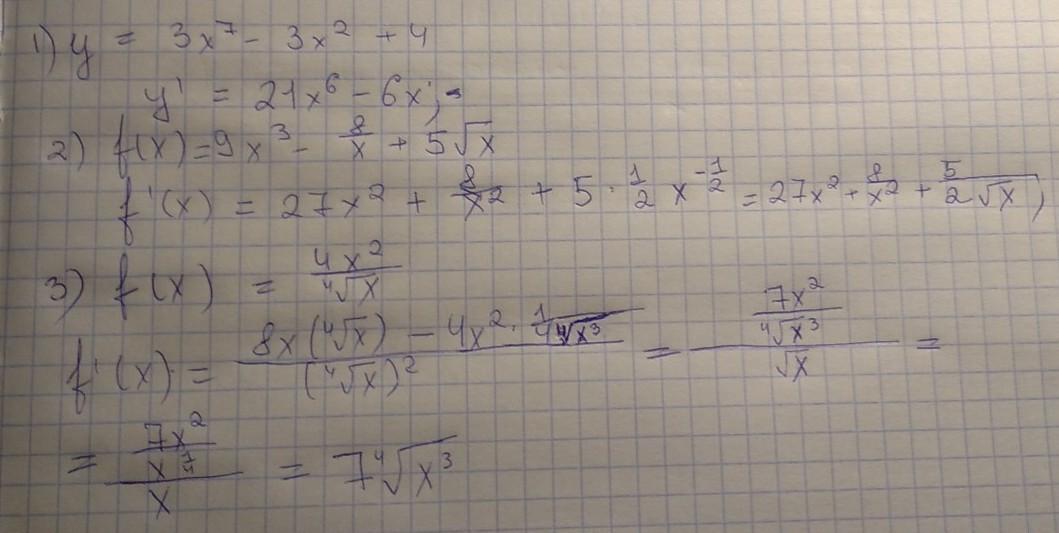 1) y = 3x⁷ - 3x² + 4
y' = 21x⁶ - 6x;
2) f(x) = 9x³ - 8/x + 5√x
f'(x) = 27x² + 8/x² + 5 · 1/2 x^(-1/2) = 27x² + 8/x² + 5/(2√x);
3) f(x) = 4x²/⁴√x
f'(x) = (8x(⁴√x) - 4x² · 1/(4⁴√x³))/(⁴√x)² = (7x²/⁴√x³)/√x =
= (7x²/x^(3/4))/x = 7⁴√x³